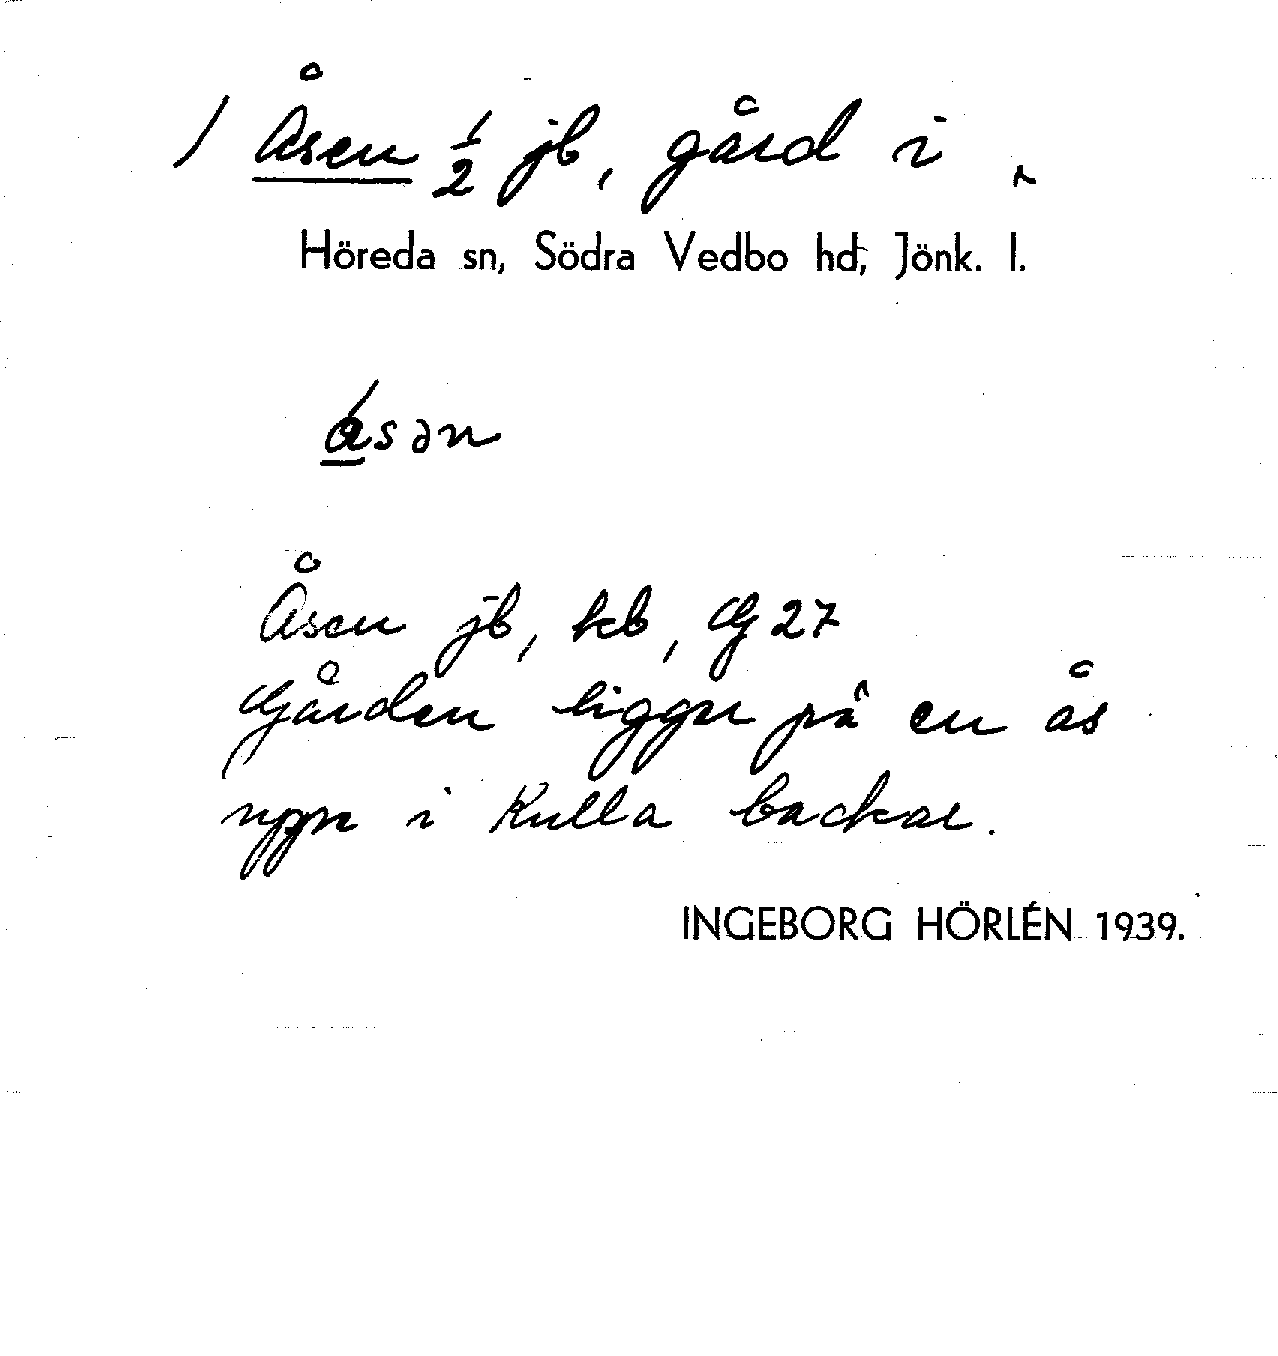 / Åsen 1/2 jb, gård i
Höreda sn, Södra Vedbo hd, Jönk. l.
Åsen jb, kb, G 27
Gården ligger på en ås
uppe i Kulla backar.
INGEBORG HÖRLÉN 1939.